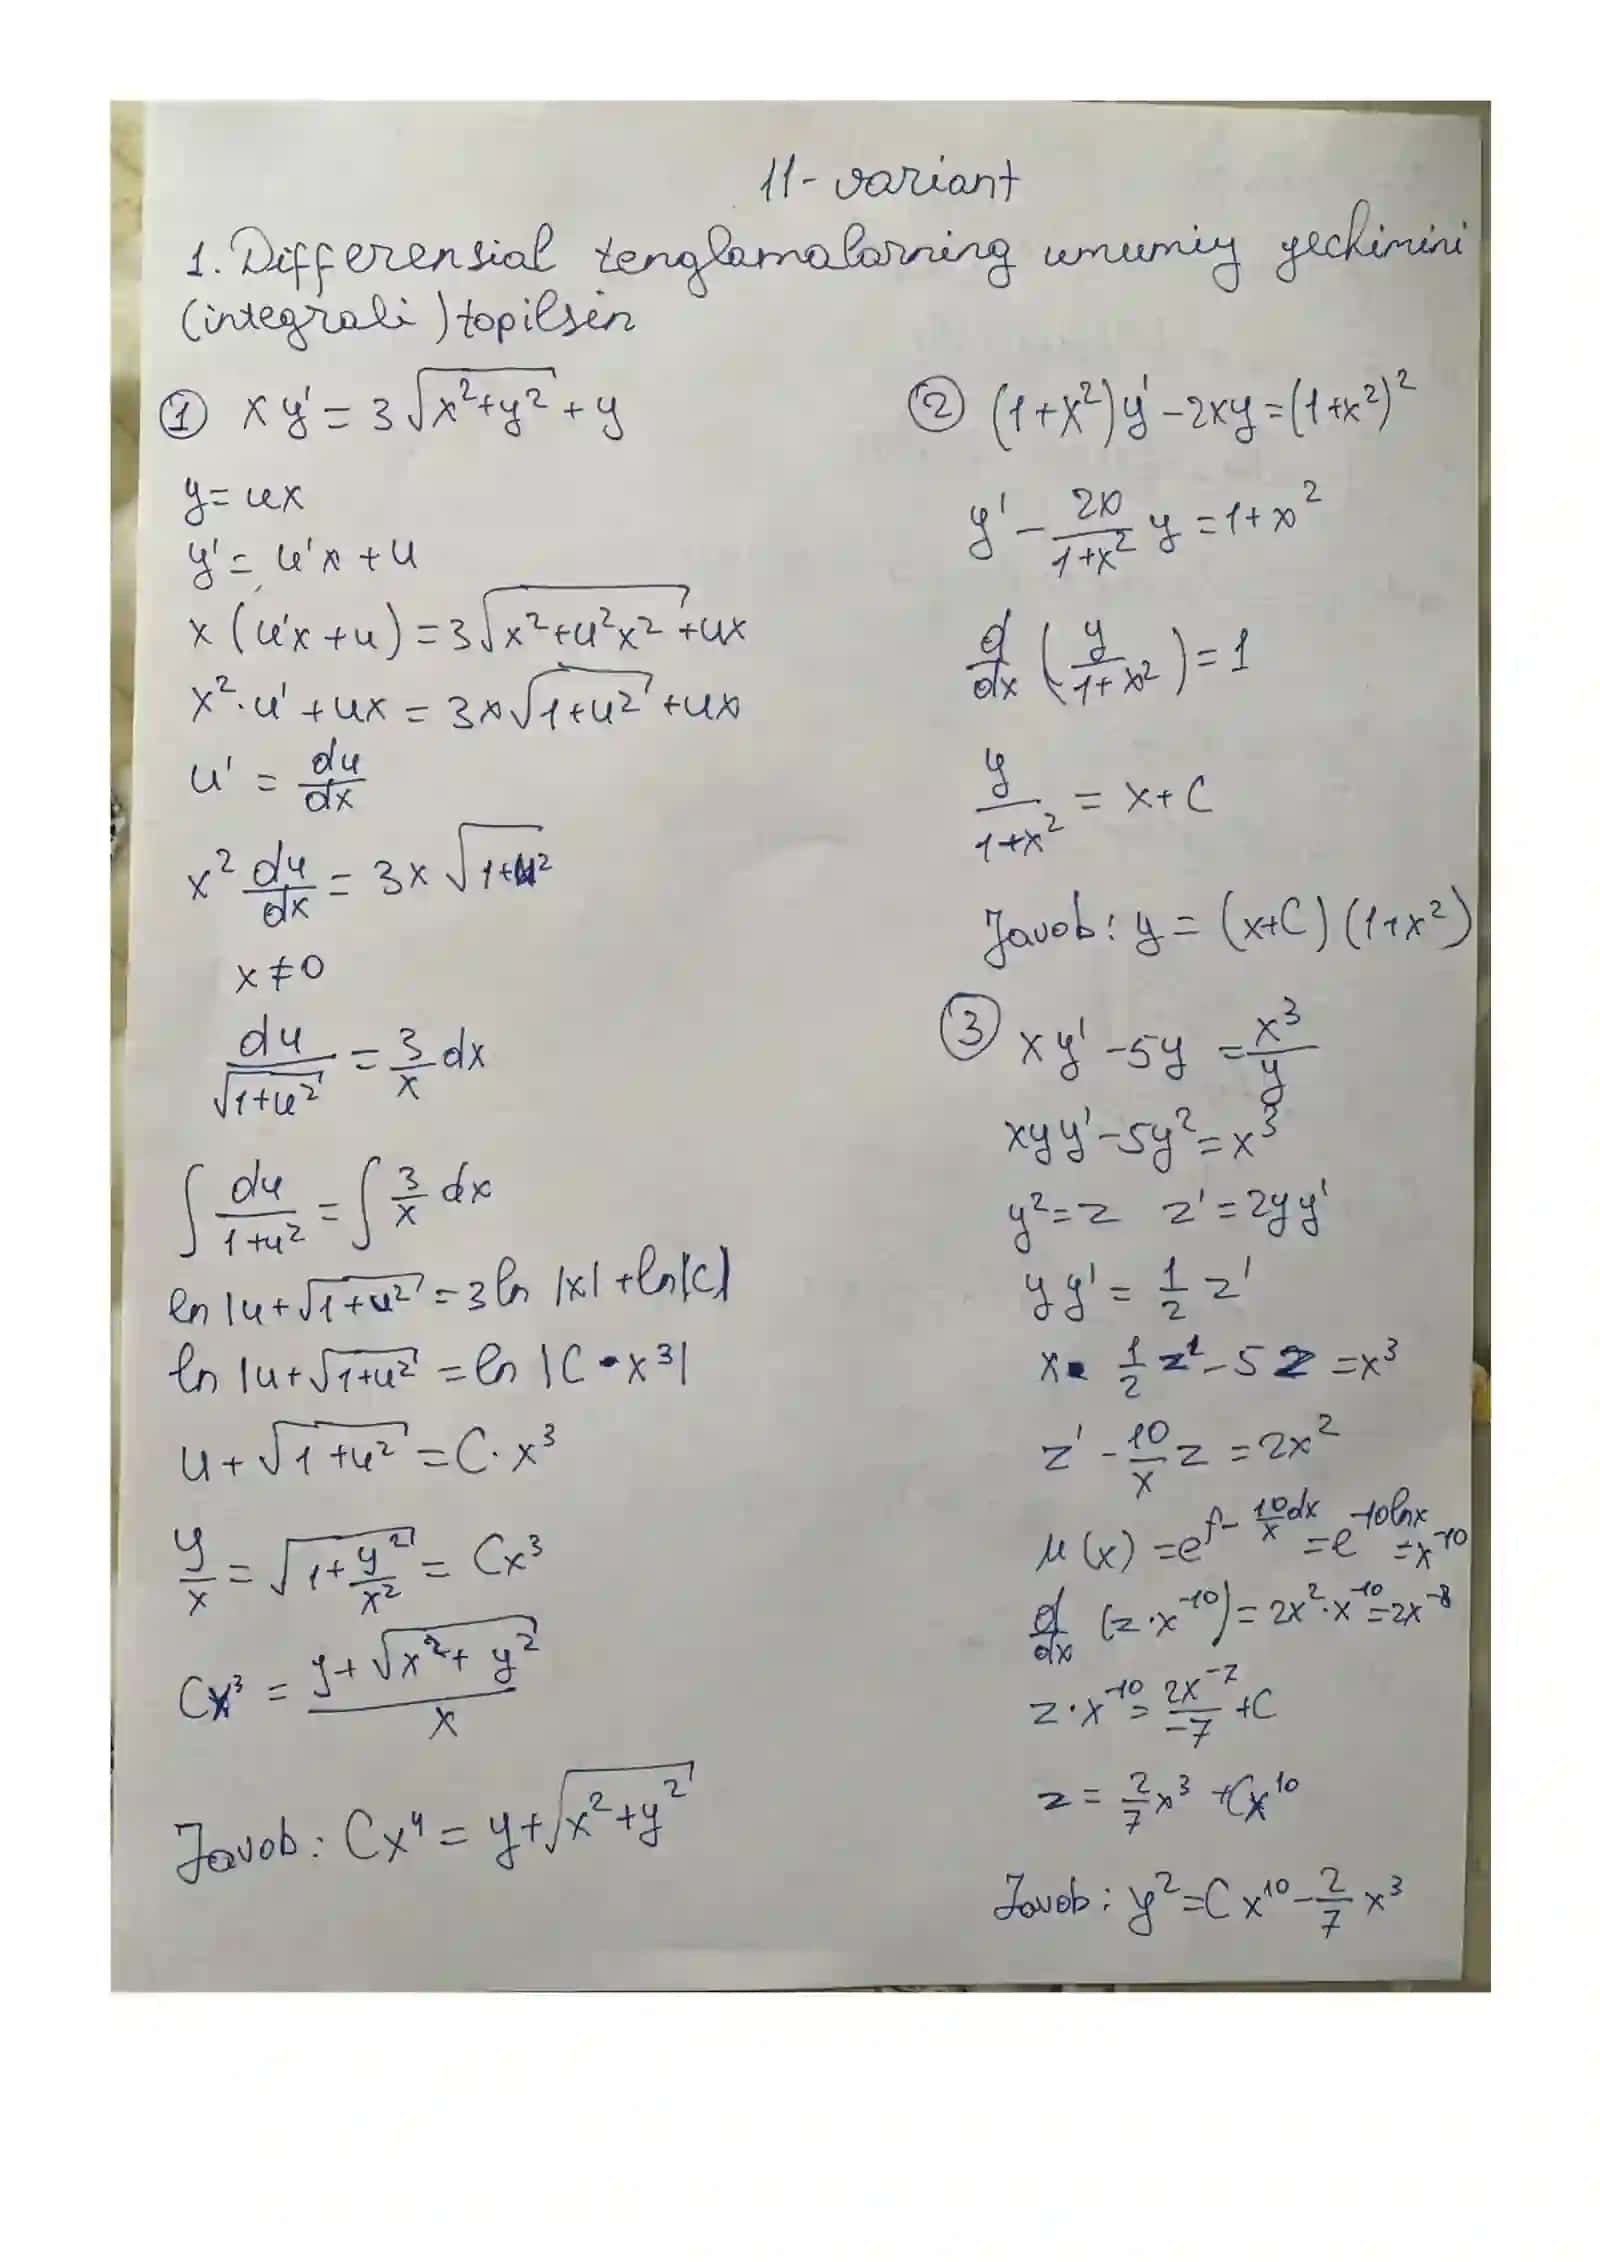 11-variant
1. Differensial tenglamalarning umumiy yechimini
(integrali) topilsin
① xy' = 3√(x²+y²) + y
y = ux
y' = u'x + u
x(u'x + u) = 3√(x²+u²x²) + ux
x²·u' + ux = 3x√(1+u²) + ux
u' = du/dx
x² du/dx = 3x√(1+u²)
x ≠ 0
du/√(1+u²) = 3/x dx
∫ du/(1+u²) = ∫ 3/x dx
ln|u+√(1+u²) = 3ln|x| + ln|C|
ln|u+√(1+u²) = ln|C·x³|
u + √(1+u²) = C·x³
y/x = √(1+y²/x²) = Cx³
Cx³ = (y+√(x²+y²))/x
Javob: Cx⁴ = y+√(x²+y²)
② (1+x²)y' - 2xy = (1+x²)²
y' - 2x/(1+x²) y = 1+x²
d/dx (y/(1+x²)) = 1
y/(1+x²) = x+C
Javob: y = (x+C)(1+x²)
③ xy' - 5y = x³/y
xyy' - 5y² = x³
y² = z z' = 2yy'
yy' = 1/2 z'
x· 1/2 z' - 5z = x³
z' - 10/x z = 2x²
μ(x) = e^(∫- 10/x dx) = e^(-10lnx) = x⁻¹⁰
d/dx (z·x⁻¹⁰) = 2x²·x⁻¹⁰ = 2x⁻⁸
z·x⁻¹⁰ = 2x⁻⁷/-7 + C
z = 2/7 x³ + Cx¹⁰
Javob: y² = Cx¹⁰ - 2/7 x³